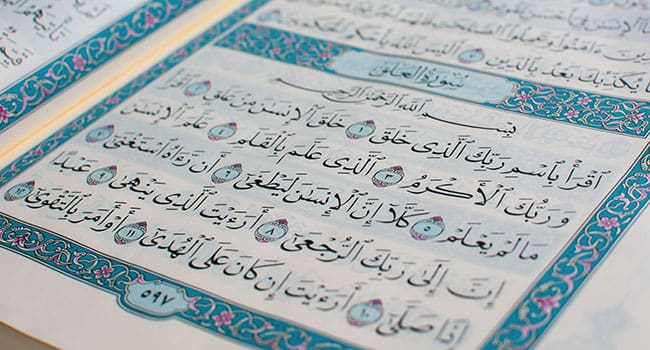 يُكَذِّبُكَ بَعْدُ بِٱلدِّينِ ٧ أَلَيْسَ ٱللَّهُ بِأَحْكَمِ ٱلْحَـٰكِمِينَ
سُورَةُ ٱلْعَلَقِ
بِسْمِ ٱللَّهِ ٱلرَّحْمَـٰنِ ٱلرَّحِيمِ
ٱقْرَأْ بِٱسْمِ رَبِّكَ ٱلَّذِى خَلَقَ ١ خَلَقَ ٱلْإِنسَـٰنَ مِنْ عَلَقٍ ٢ ٱقْرَأْ
وَرَبُّكَ ٱلْأَكْرَمُ ٣ ٱلَّذِى عَلَّمَ بِٱلْقَلَمِ ٤ عَلَّمَ ٱلْإِنسَـٰنَ
مَا لَمْ يَعْلَمْ ٥ كَلَّآ إِنَّ ٱلْإِنسَـٰنَ لَيَطْغَىٰٓ ٦ أَن رَّءَاهُ ٱسْتَغْنَىٰٓ ٧
إِنَّ إِلَىٰ رَبِّكَ ٱلرُّجْعَىٰٓ ٨ أَرَءَيْتَ ٱلَّذِى يَنْهَىٰ ٩ عَبْدًا
إِذَا صَلَّىٰٓ ١٠ أَرَءَيْتَ إِن كَانَ عَلَى ٱلْهُدَىٰٓ ١١ أَوْ أَمَرَ بِٱلتَّقْوَىٰٓ ١٢
٥٩٧